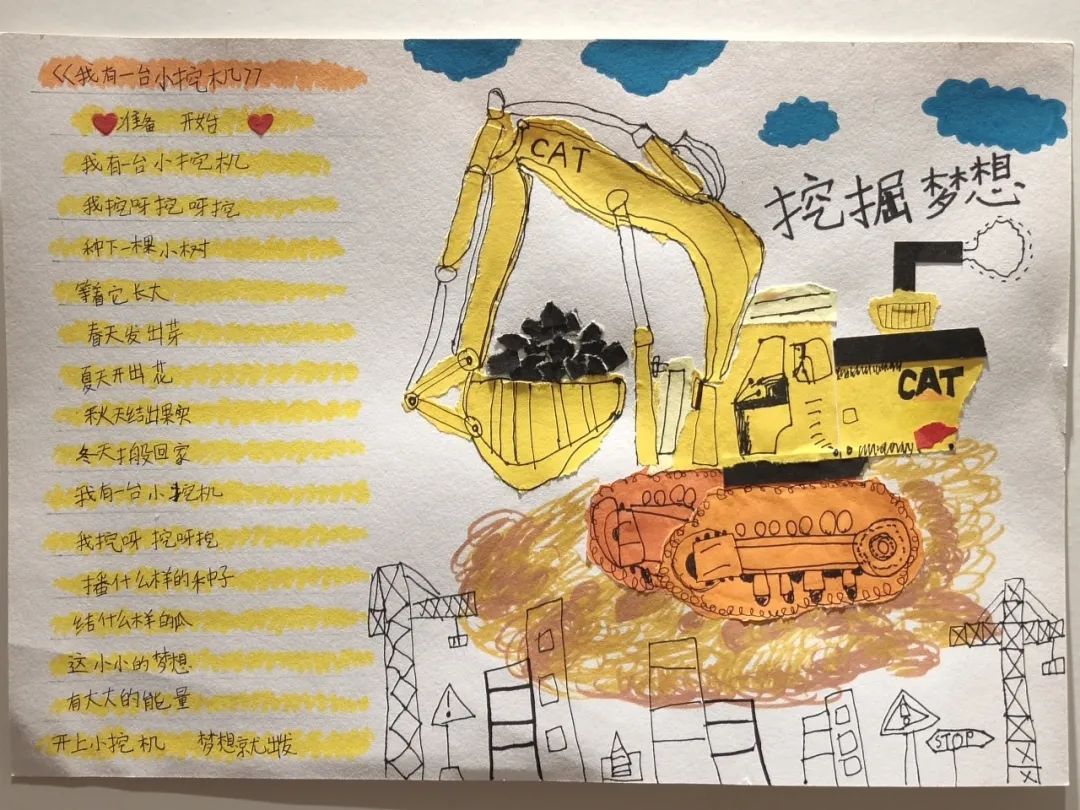 <<我有一台小挖机>>
准备 开始
我有一台小挖机
我挖呀挖呀挖
种下一棵小树
等着它长大
春天发出芽
夏天开出花
秋天结出果实
冬天搬回家
我有一台小挖机
我挖呀挖呀挖
播什么样的种子
结什么样的瓜
这小小的梦想
有大大的能量
开上小挖机 梦想就出发
CAT
挖掘梦想
CAT
STOP